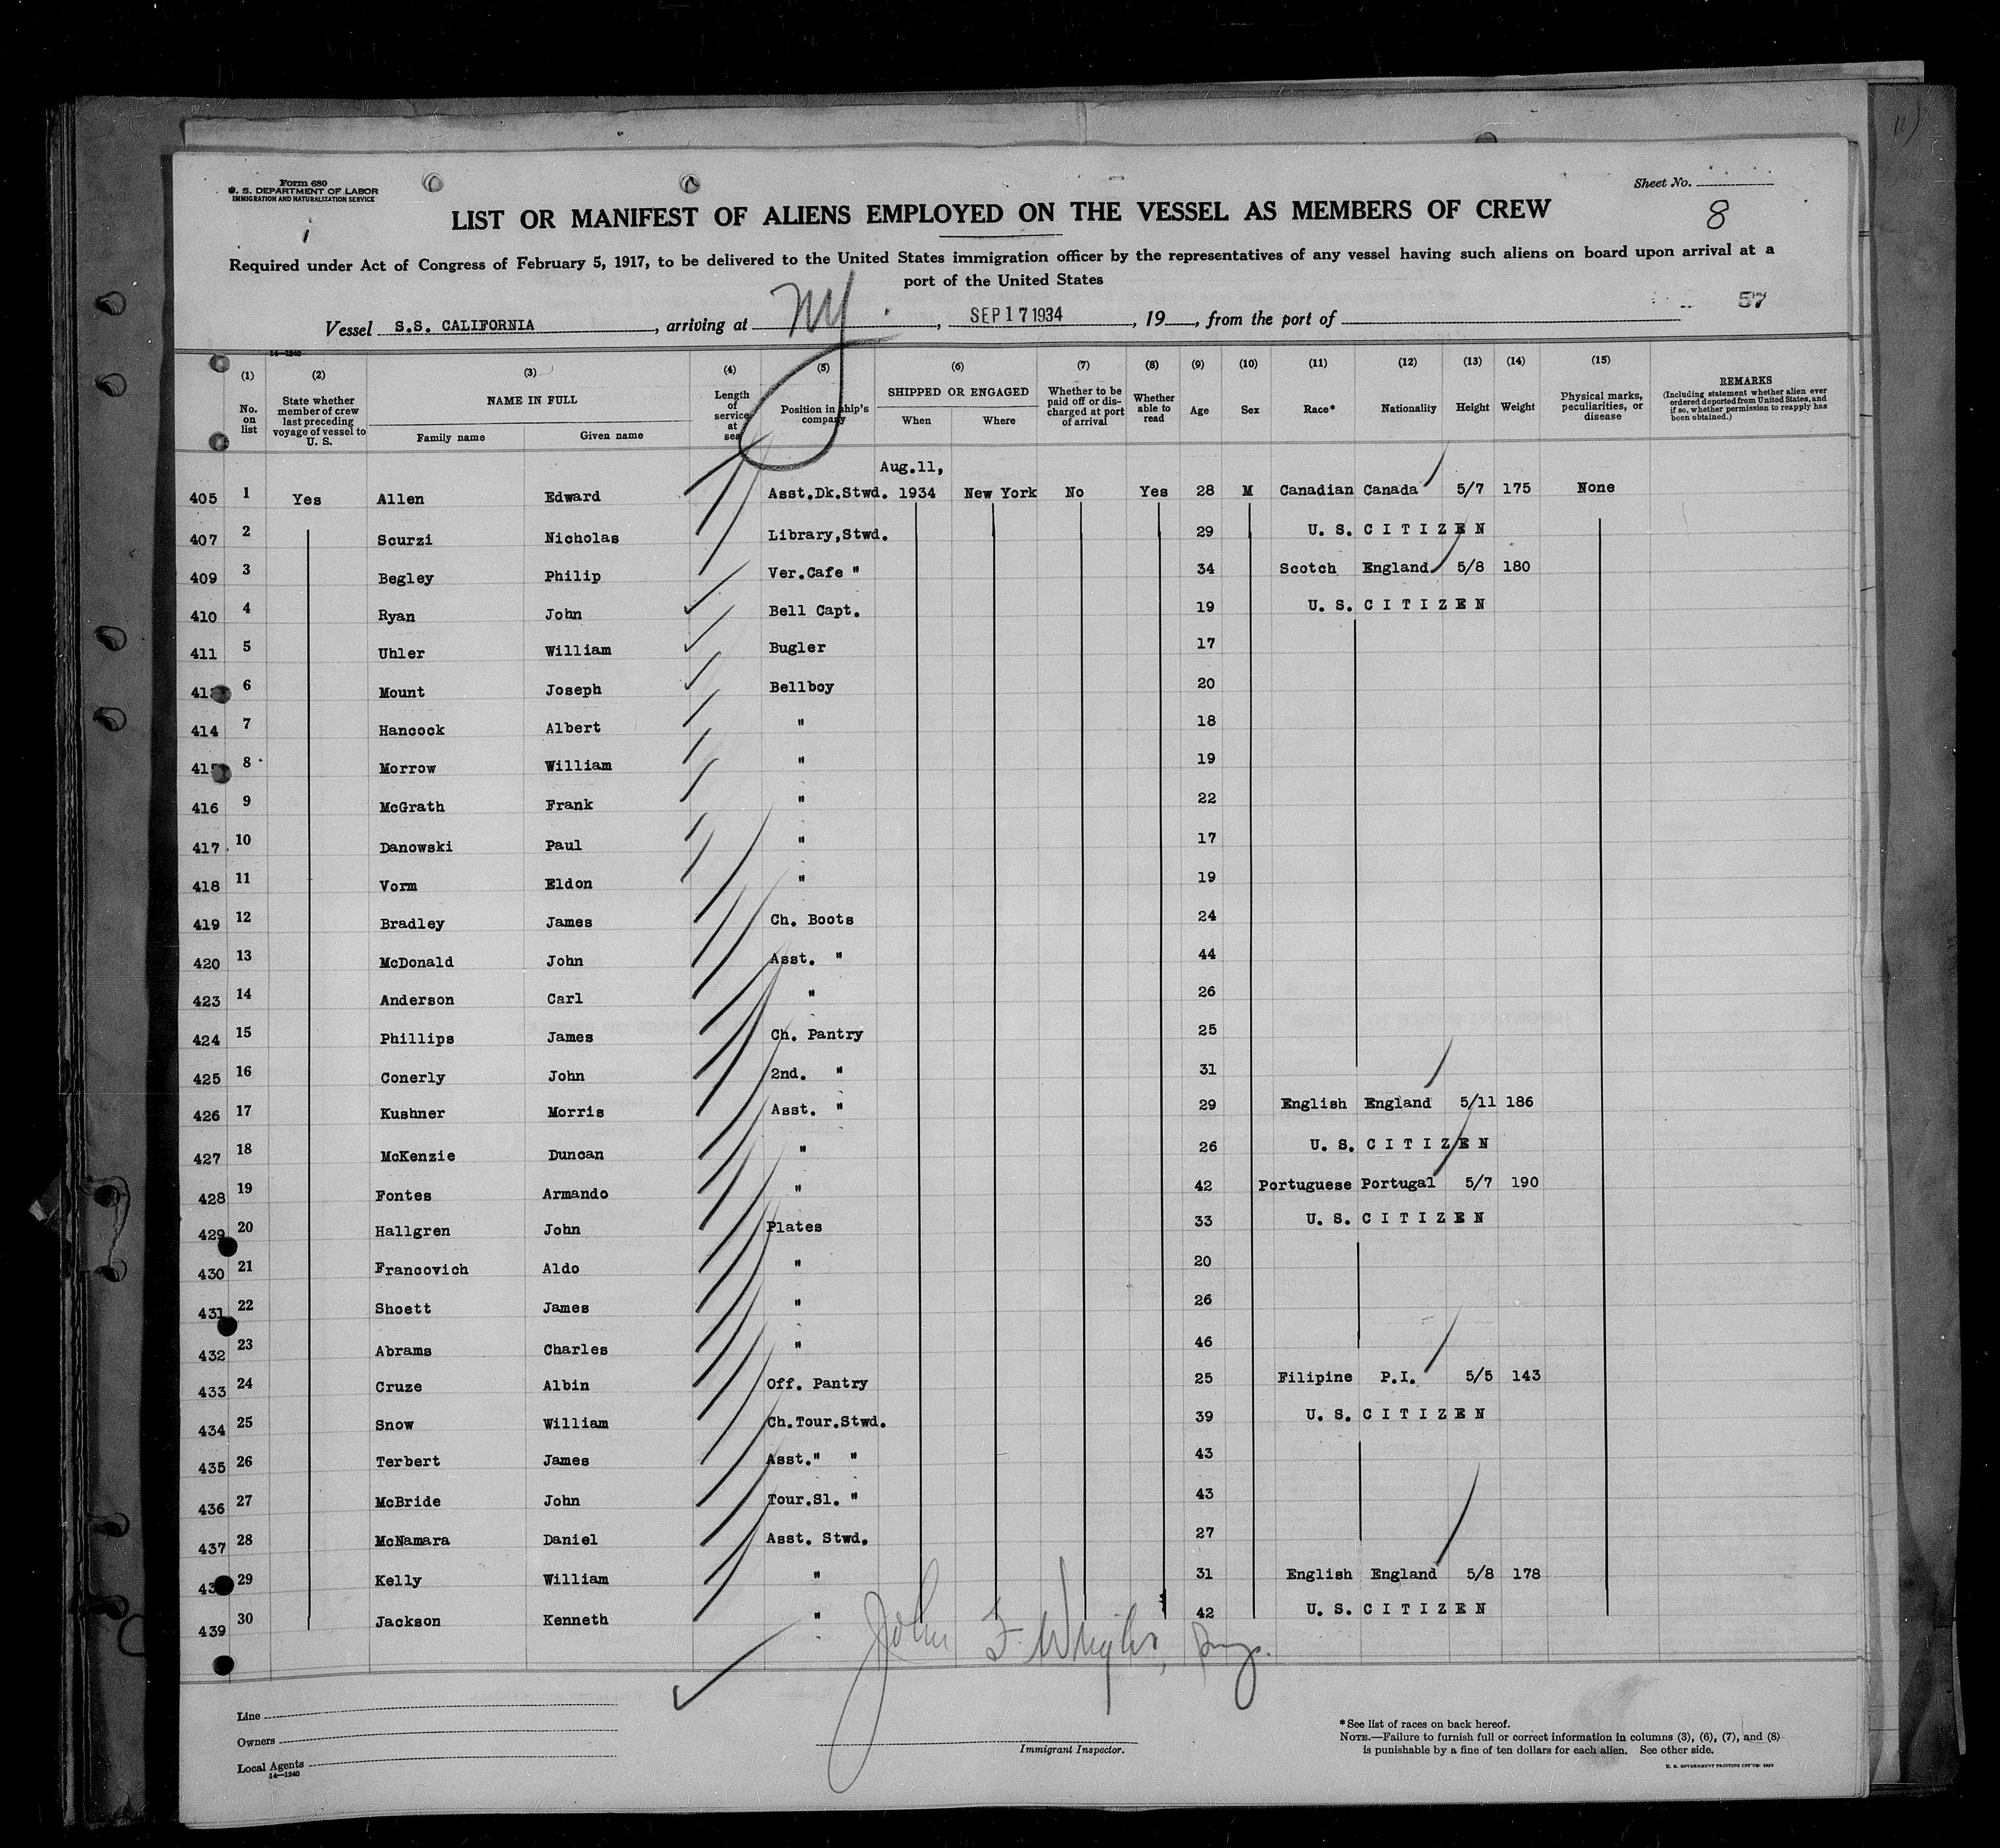 Form 680
U. S. DEPARTMENT OF LABOR
IMMIGRATION AND NATURALIZATION SERVICE
Sheet No.
8
LIST OR MANIFEST OF ALIENS EMPLOYED ON THE VESSEL AS MEMBERS OF CREW
Required under Act of Congress of February 5, 1917, to be delivered to the United States immigration officer by the representatives of any vessel having such aliens on board upon arrival at a
port of the United States
57
Vessel S.S. CALIFORNIA, arriving at NY, SEP 17 1934, 19, from the port of
14—1240
(1) No. on list
(2) State whether member of crew last preceding voyage of vessel to U. S.
(3) NAME IN FULL Family name Given name
(4) Length of service at sea
(5) Position in ship's company
(6) SHIPPED OR ENGAGED When Where
(7) Whether to be paid off or discharged at port of arrival
(8) Whether able to read
(9) Age
(10) Sex
(11) Race*
(12) Nationality
(13) Height
(14) Weight
(15) Physical marks, peculiarities, or disease
REMARKS (Including statement whether alien ever ordered deported from United States, and if so, whether permission to reapply has been obtained.)
Aug.11,
405 1 Yes Allen Edward Asst.Dk.Stwd. 1934 New York No Yes 28 M Canadian Canada 5/7 175 None
407 2 Scurzi Nicholas Library,Stwd. 29 U. S. CITIZEN
409 3 Begley Philip Ver.Cafe " 34 Scotch England 5/8 180
410 4 Ryan John Bell Capt. 19 U. S. CITIZEN
411 5 Uhler William Bugler 17
6 Mount Joseph Bellboy 20
414 7 Hancock Albert " 18
415 8 Morrow William " 19
416 9 McGrath Frank " 22
417 10 Danowski Paul " 17
418 11 Vorm Eldon " 19
419 12 Bradley James Ch. Boots 24
420 13 McDonald John Asst. " 44
423 14 Anderson Carl " 26
424 15 Phillips James Ch. Pantry 25
425 16 Conerly John 2nd. " 31
426 17 Kushner Morris Asst. " 29 English England 5/11 186
427 18 McKenzie Duncan " 26 U. S. CITIZEN
428 19 Fontes Armando " 42 Portuguese Portugal 5/7 190
429 20 Hallgren John Plates 33 U. S. CITIZEN
430 21 Francovich Aldo " 20
431 22 Shoett James " 26
432 23 Abrams Charles " 46
433 24 Cruze Albin Off. Pantry 25 Filipine P.I. 5/5 143
434 25 Snow William Ch.Tour.Stwd. 39 U. S. CITIZEN
435 26 Terbert James Asst." " 43
436 27 McBride John Tour.Sl. " 43
437 28 McNamara Daniel Asst. Stwd. 27
29 Kelly William " 31 English England 5/8 178
439 30 Jackson Kenneth " 42 U. S. CITIZEN
John F. Wright,
Line
Owners
Local Agents
14—1240
Immigrant Inspector.
*See list of races on back hereof.
NOTE.—Failure to furnish full or correct information in columns (3), (6), (7), and (8)
is punishable by a fine of ten dollars for each alien. See other side.
U. S. GOVERNMENT PRINTING OFFICE: